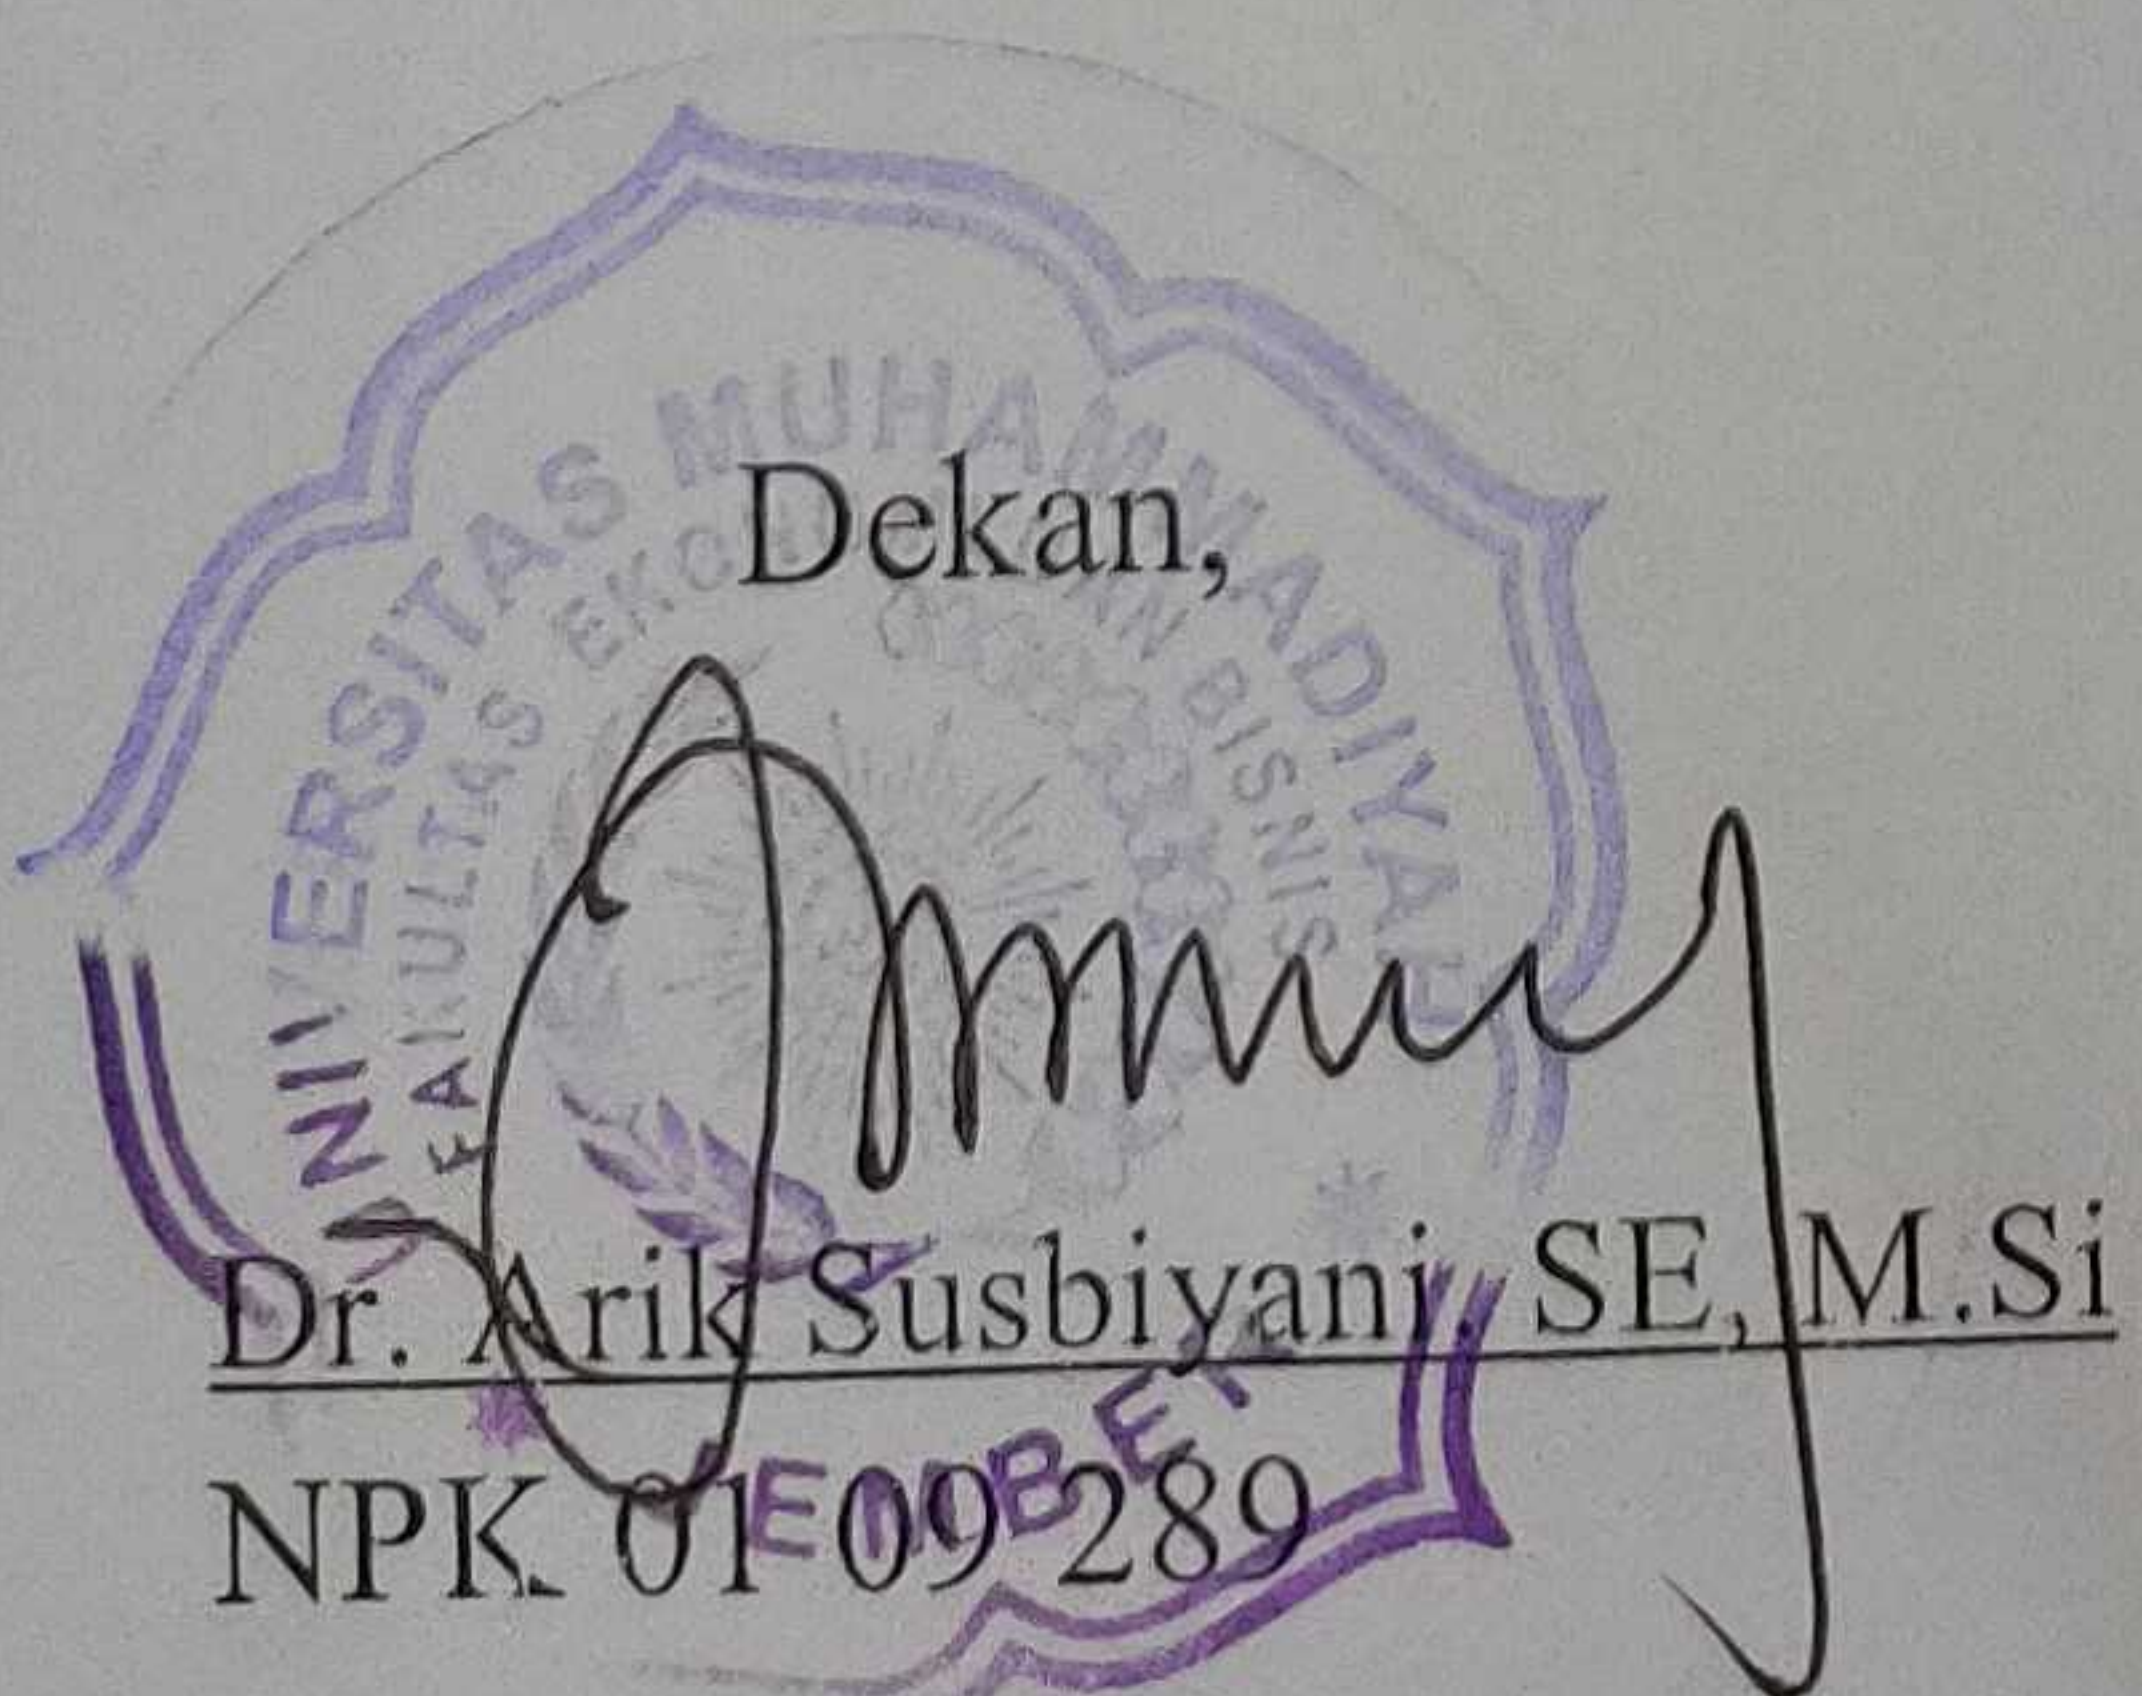 UNIVERSITAS MUHAMMADIYAH
FAKULTAS EKONOMI DAN BISNIS
Dekan,
Dr. Arik Susbiyani, SE, M.Si
JEMBER
NPK. 01 09 289